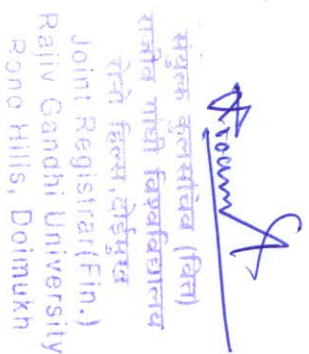 संयुक्त कुलसचिव (वित्त)
राजीव गांधी विश्वविद्यालय
रोनो हिल्स, दोईमुख
Joint Registrar(Fin.)
Rajiv Gandhi University
Rono Hills, Doimukh